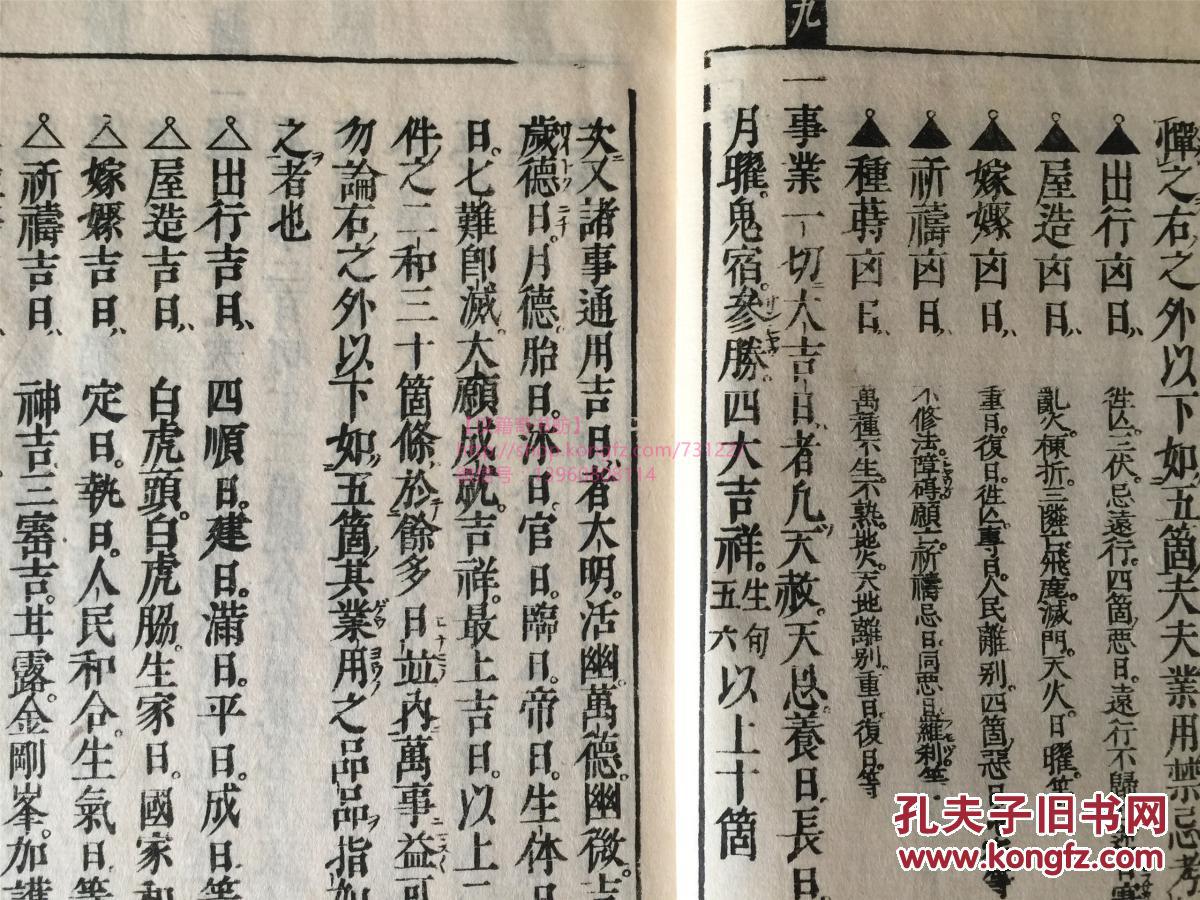 九
憚之右之外以下如五箇夫夫業用禁忌考
出行凶日、徃亾三伏。忌遠行。四箇惡日。遠行不歸
屋造凶日、亂火棟折。三隣亾飛塵滅門。天火日曜等
嫁娶凶日、重日。復日。徃亾專日。人民離別。四箇惡日
祈禱凶日、不修法障碍願亾祈禱忌日。同惡日羅利等
種蒔凶日、萬種不生。不熟。地火。天地離別。重日復日。等
一事業一切大吉日者凢天赦。天恩養日。長日。
月曜。鬼宿。參勝。四大吉祥。五生六旬以上十箇
次ニ又諸事通用吉日者大明。活幽。萬德。幽微。吉
歲德日。月德。胎日。沐日。官日。臨日。帝日。生体日
日。七難卽滅。大願成就。吉祥。最上吉日。以上二
件之二和三十箇條於餘多日並内萬事益可
勿論右之外以下如五箇其業用之品品指如
之者也
出行吉日、四順日。建日。滿日。平日。成日。等
屋造吉日、白虎頭。白虎脇。生家日。國家和
嫁娶吉日、定日。執日。人民和合。生氣日。等
祈禱吉日、神吉三審吉。甘露。金剛峯。加護
http://shop.kongfz.com/73122
孔夫子旧书网
www.kongfz.com